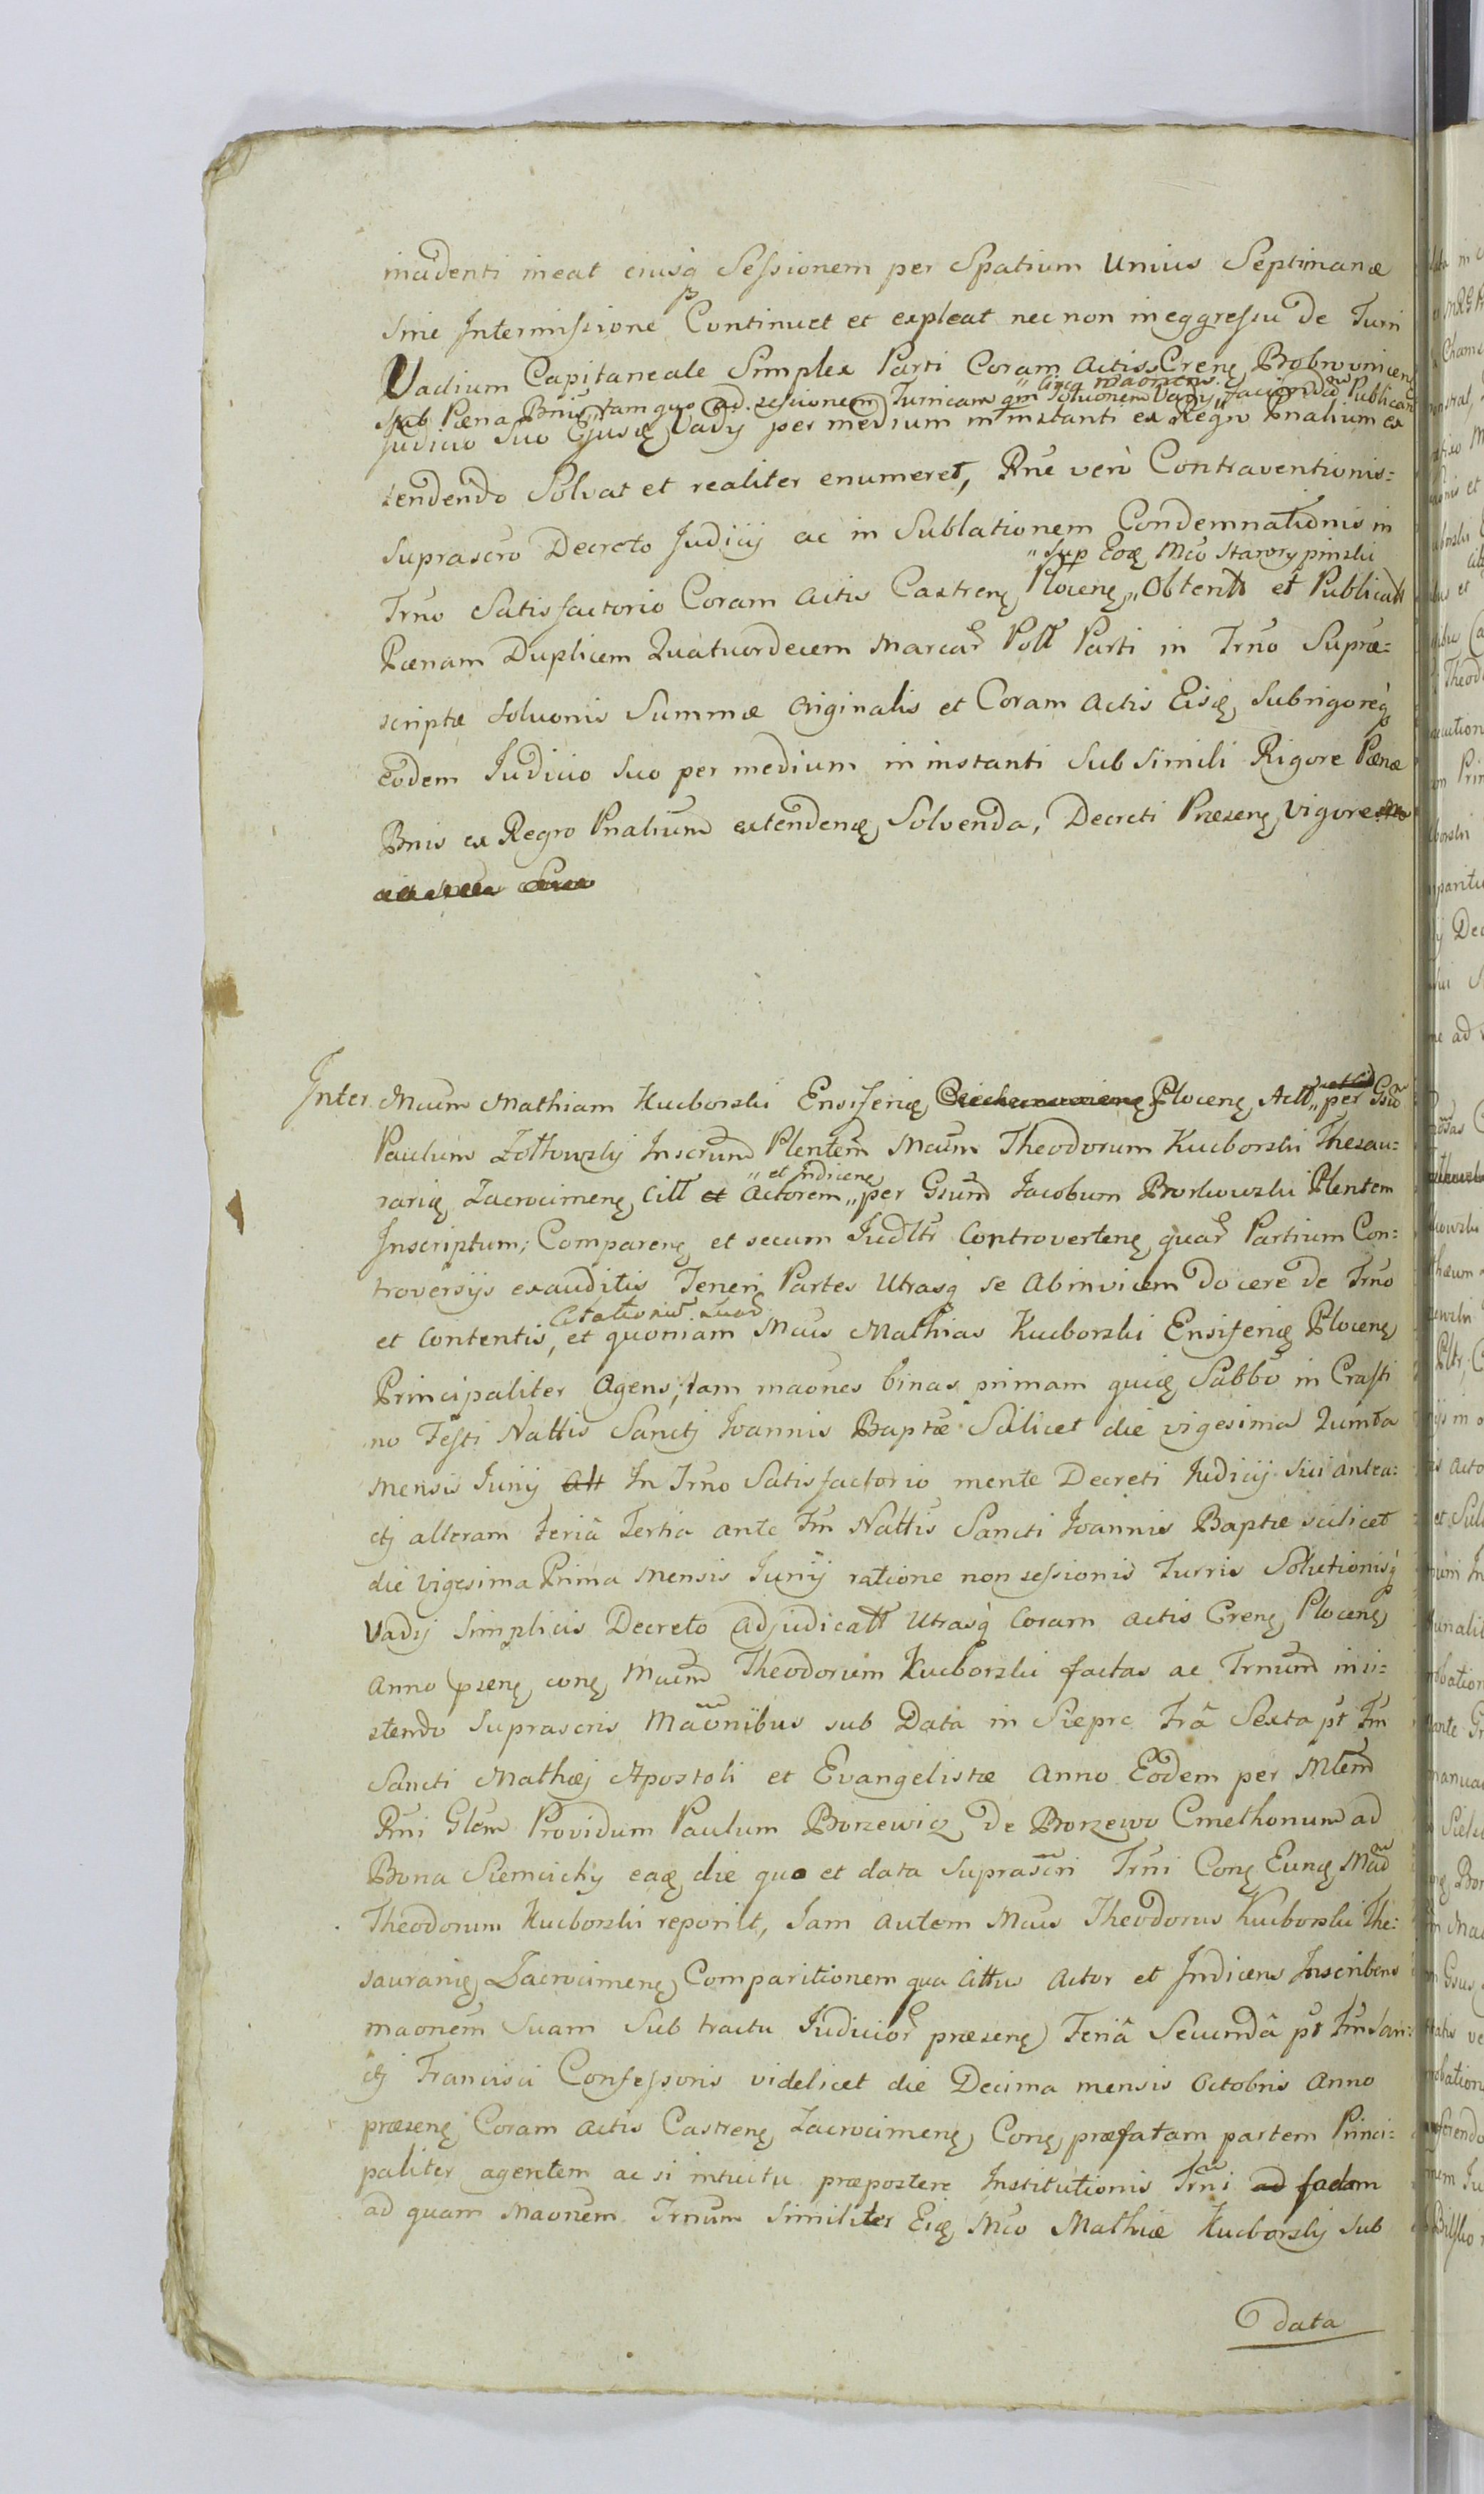 incidenti ineat eiusq̀ Sessionem per Spatium Unius Septimanæ
sine Intermissione Continuet et expleat nec non in eggressu de Turri
Vadium Capitaneale Simplex Parti Coram actis Crenę Bobrownicenę
Sub Pæna Bnis, tam quo ad sessionem Turricam qm solvonem Vadij
judicio Suo Ejusdę Vadij per medium in instanti ex Regro Pnalium ex
tendendo Solvat et realiter enumeret, Rne verò Contraventionis=
suprascro Decreto Judicij ac in Sublationem Condemnationis in
"Sup Eoę Mco Starorypinski
Trno Satisfactorio Coram actis Castrenę Plocenę,, Obtentæ et Publicatt
Pænam Duplicem Quatuordecem Marcar Poll Parti in Trno Supra=
scriptæ solvonis Summæ originalis et Coram Actis Eisdę, sub rigoreq̀
eodem Iudicio suo per medium in instanti sub simili Rigore Pænæ
Bnis ex Regro Pnalium extendendę Solvenda, Decreti Præsenę Vigore
Inter Mcum Mathiam Kucborski Ensiferię Plocenę Act per Gsū
Paulum Zołtowsky Inscrum Plentem Mcum Theodorum Kucborski Thesau=
"et Indicenę
rarię Zacrocimenę Citt et Actorem,, per Gsum Jacobum Borkowski Plentem
Inscriptum; Comparenę et secum Iudltr Controvertenę quar Partium Con=
troversijs exauditis Teneri Partes Utrasq̀ se ab invicem docere de Trno
Citationis
et Contentis, et quoniam Mcus Mathias Kucborski Ensiferię Plocenę
Principaliter Agens, tam maones binas primam quidę Sabbo in Crasti
no Festi Nattis Sancti Ioannis Baptæ Scilicet die vigesima Quinta
Mensis Iunij att In Trno Satisfactorio mente Decreti Iudicij Sui antea=
cti alteram Feria Tertia ante Fm Nattis Sancti Ioannis Baptæ scilicet
die vigesima Prima Mensis Iunij ratione non sessionis Turris Solutionisq̀
Vadij Simplicis Decreto adjudicatt utrasq̀ Coram actis Crenę Plocenę
Anno psenę conę Mcum Theodorum Kucborski factas ac Trnum insi=
stendo suprascris Maonibus sub Data in Sieprc Fra Sexta pt Fm
Sancti Mathæj Apostoli et Evangelistæ Anno Eodem per Mtem
Rni Glem Providum Paulum Borzewicz de Borzewo Cmethonum ad
Bona Siemcichy eadę die quo et data suprascri Trni Conę Eundę Mcū
Theodorum Kucborski reponit, Iam autem Mcus Theodorus Kucborski The=
saurarię Zacrocimenę Comparitionem qua Cittus Actor et Indicens Inscribens
maonem suam sub tractu Iudicior præsenę Feriâ Secundâ pt Fm San=
cti Francisci Confessoris videlicet die Decima mensis Octobris Anno
præsenę Coram actis Castrenę Zacrocimenę Conę præfatam partem Princi=
paliter agentem ac si intuitu præposteræ Institutionis Trni ad factam
ad quam Maonem Trnum Similiter Eidę Mco Mathiæ Kucborsky sub
data